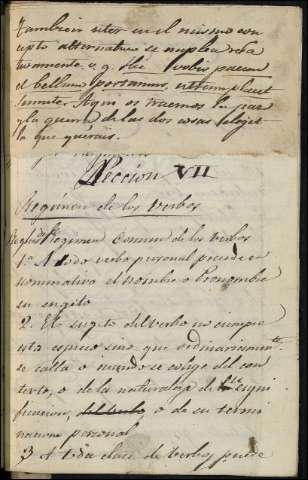 tambien siter en el mismo con
cepto alternativo se emplea rela
tivamente v. g. Hic vobis pacem
et bellum portamus, utrum placet
sumite. Aqui os traemos la paz
y la guerra de las dos cosas elegid
la que querais.
Leccion VII
Regimen de los verbos
Reglas del Regimen Comun de los verbos
1ª A todo verbo personal precede un
nominativo el nombre o Pronombre
su sugeto
2. El sugeto del verbo no siempre
esta espreso sino que ordinariamente
se calla o cuando se colige del con
texto, o de la naturaleza de su signi
ficacion, o de su termi
nacion personal
3 A toda clase de verbos puede